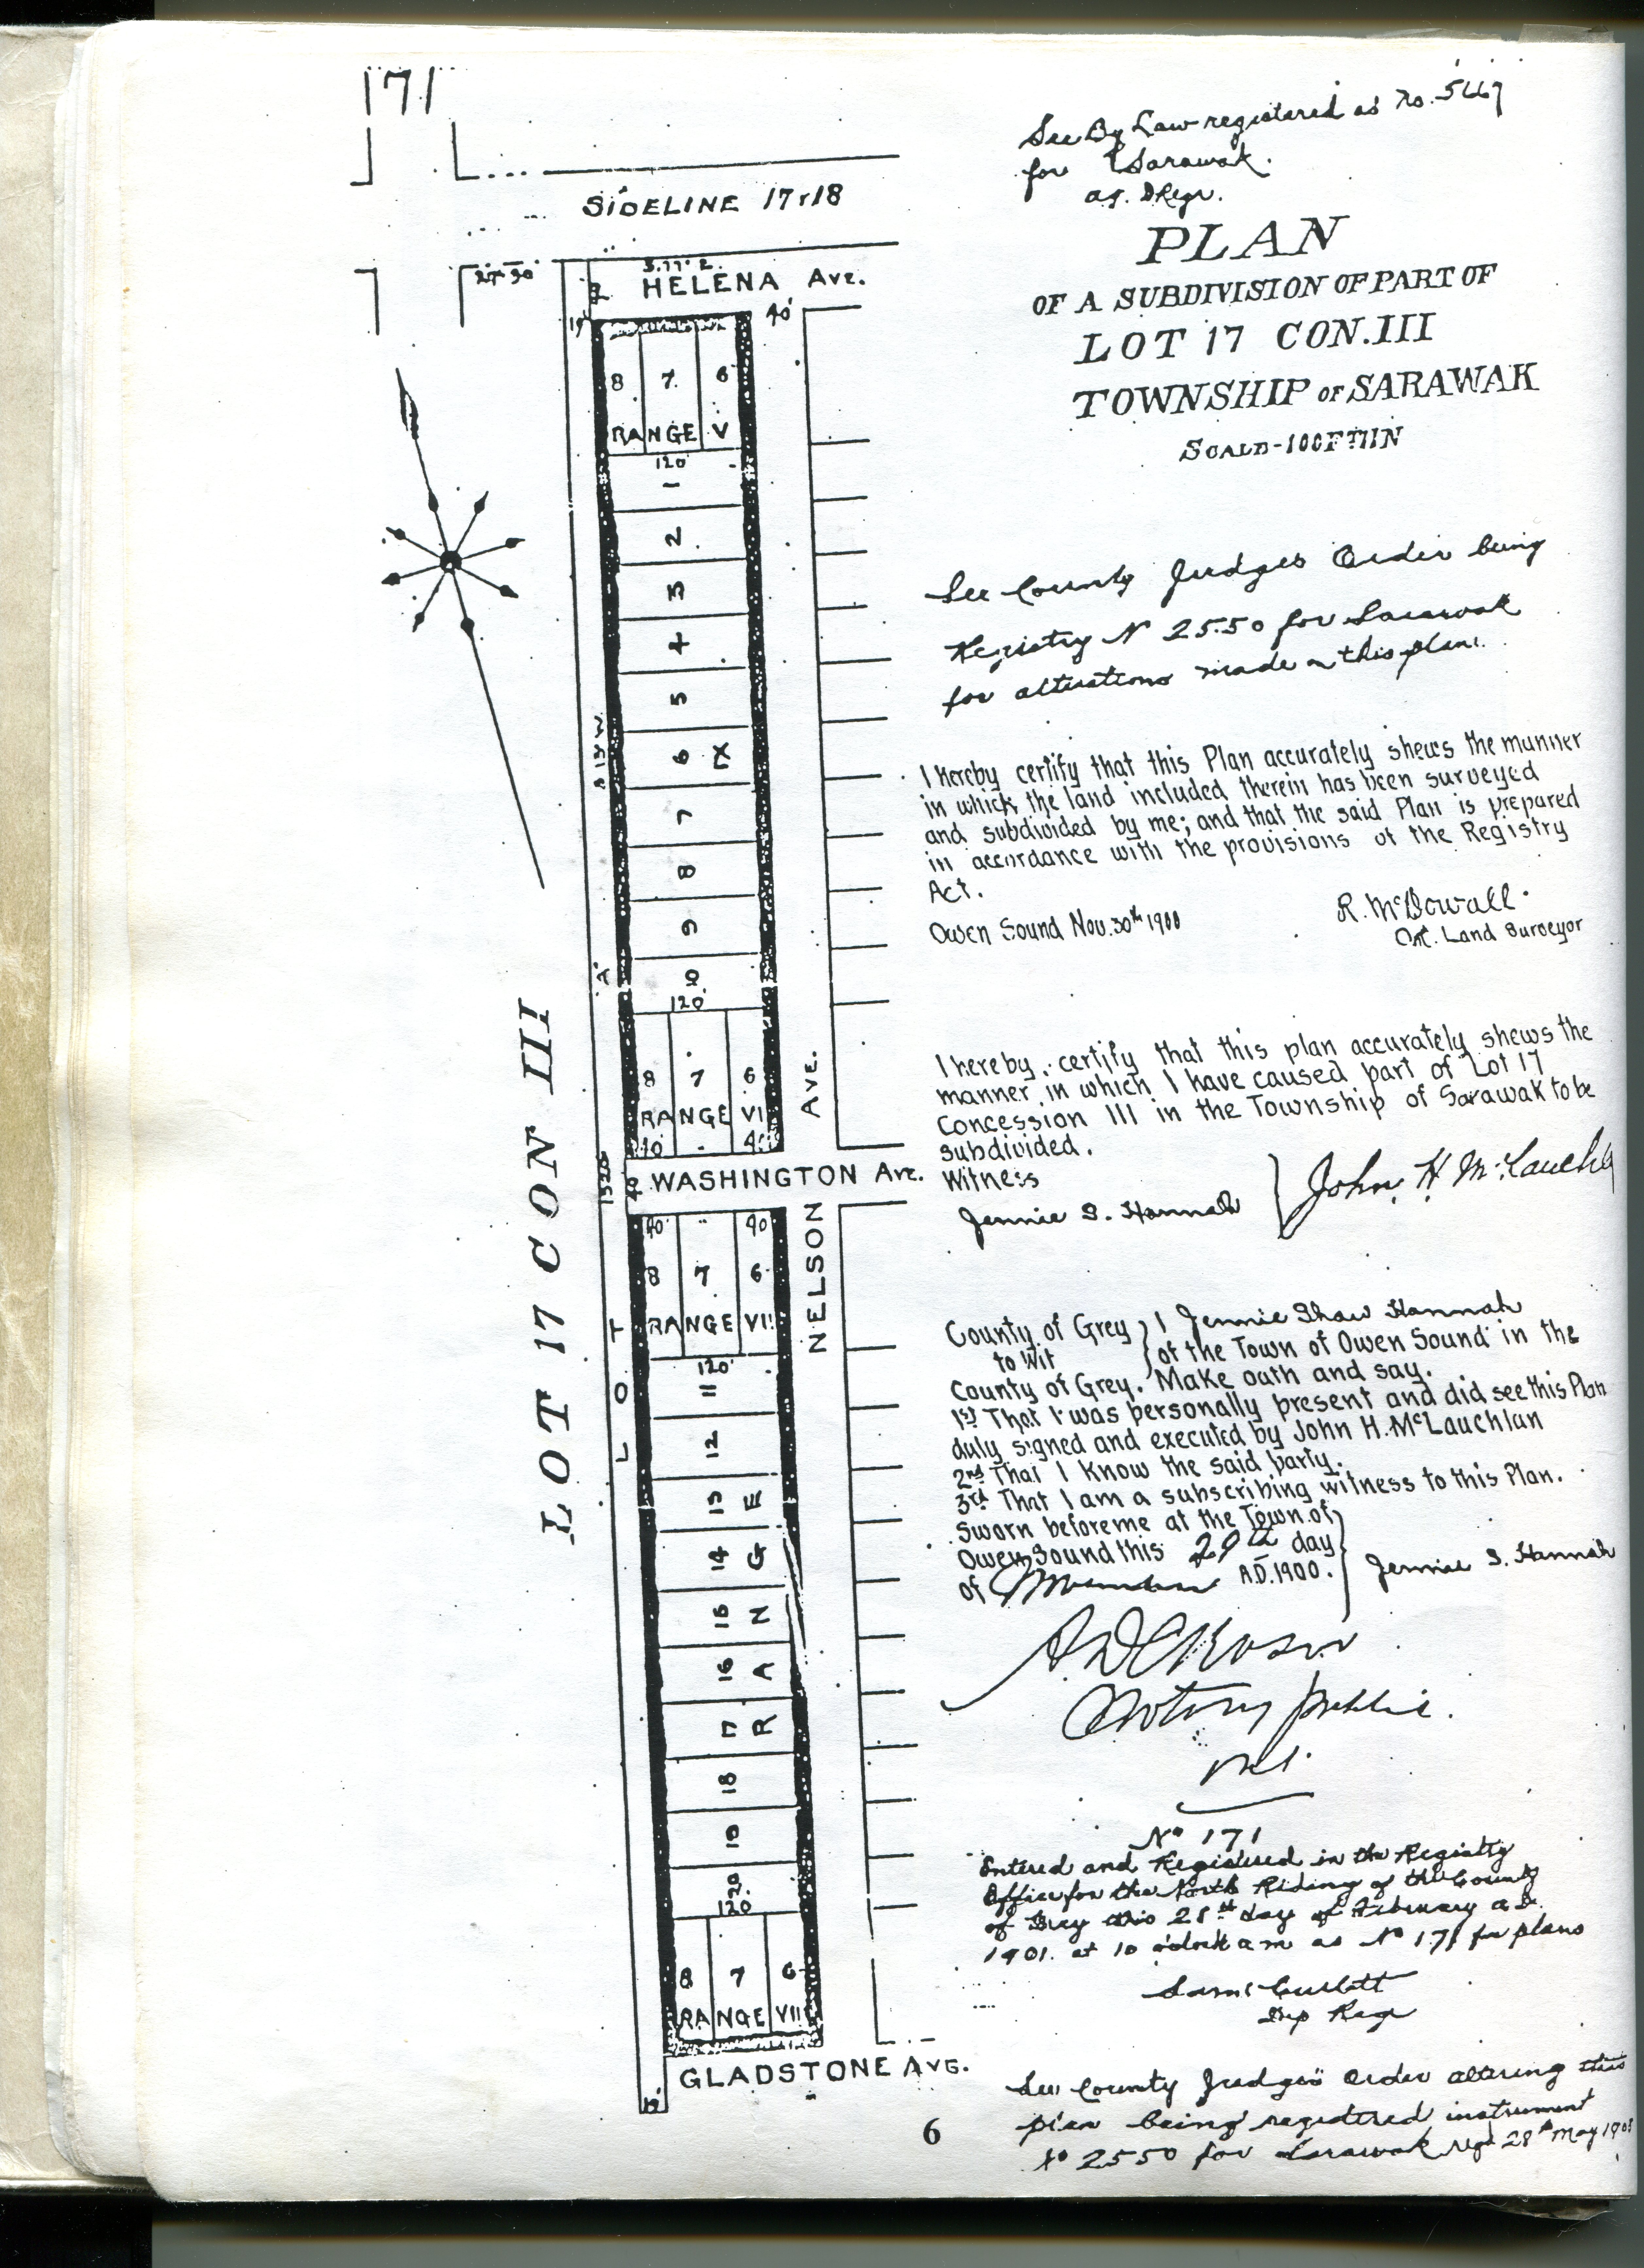 171
See By Law registered as No. 5667
for Sarawak.
SIDELINE 17 & 18
PLAN
OF A SUBDIVISION OF PART OF
LOT 17 CON. III
TOWNSHIP OF SARAWAK
SCALE-100FT1IN
HELENA AVE.
19'
40'
8 7 6
RANGE V
120'
1
2
3
4
5
6 IX
7
8
9
10
120'
8 7 6
RANGE VI
40' 40'
WASHINGTON AVE.
1520
40' 40'
8 7 6
RANGE VII
120'
11
12
13 E
14 G
15 N
16 A
17 R
18
19
20
120'
8 7 6
RANGE VIII
GLADSTONE AVE.
LOT A
LOT 17 CON III
NELSON AVE.
See County Judges Order being
Registry N 2550 for Sarawak
for alterations made on this plan.
I hereby certify that this Plan accurately shews the manner
in which the land included therein has been surveyed
and subdivided by me; and that the said Plan is prepared
in accordance with the provisions of the Registry
Act.
Owen Sound Nov. 30th 1900
R. McDowall.
Ont. Land Surveyor
I hereby certify that this plan accurately shews the
manner in which I have caused part of Lot 17
Concession III in the Township of Sarawak to be
subdivided.
Witness
Jennie S. Hannah
John H. McLauchla
County of Grey } I Jennie Shaw Hannah
to Wit } of the Town of Owen Sound in the
County of Grey. Make oath and say.
1st That I was personally present and did see this Plan
duly signed and executed by John H. McLauchlan
2nd That I know the said party.
3rd That I am a subscribing witness to this Plan.
Sworn before me at the Town of
Owen Sound this 29th day
of November A.D. 1900.
Jennie S. Hannah
Notary Public
No 171
Entered and Registered in the Registry
Office for the North Riding of the County
of Grey this 28th day of February A.D.
1901. at 10 o'clock a.m as No 171 for plans
Dep Regr
See County Judge's Order altering this
plan being registered instrument
No 2550 for Sarawak regd 28th May
6